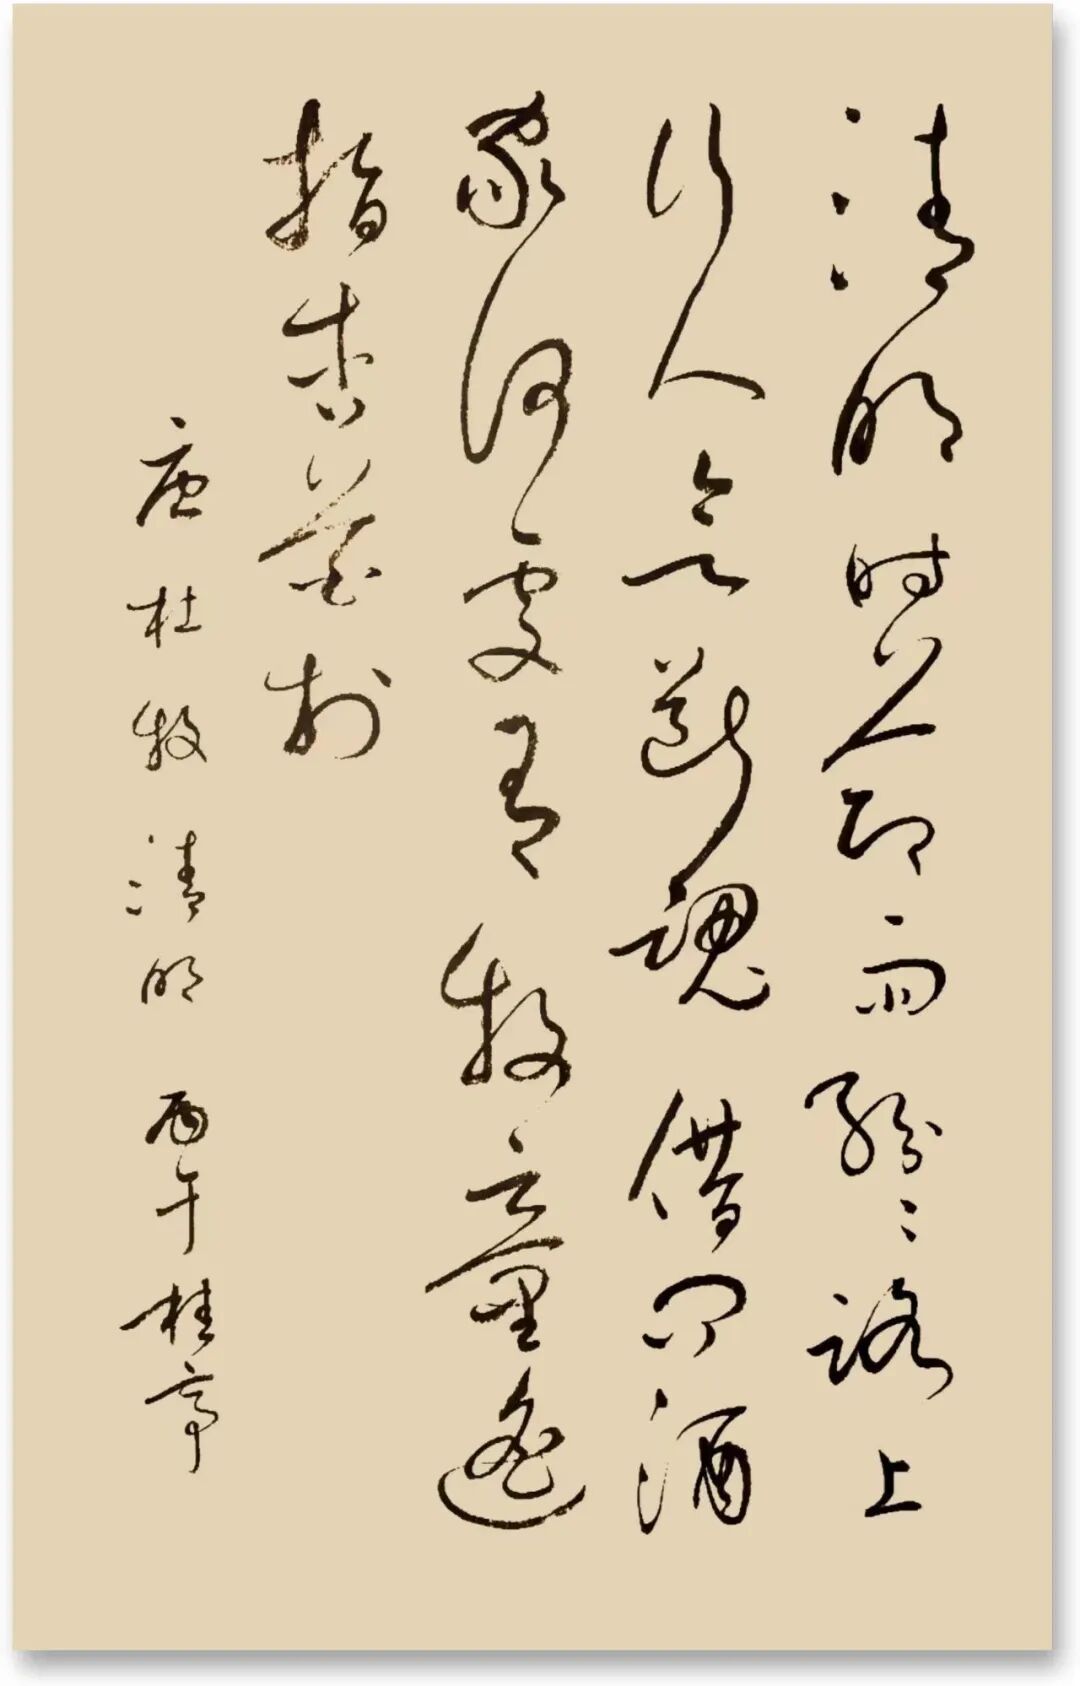 清明时節雨紛〻路上
行人欲斷魂借问酒
家何處有牧童遙
指杏花村
唐杜牧清明 丙午桂亭